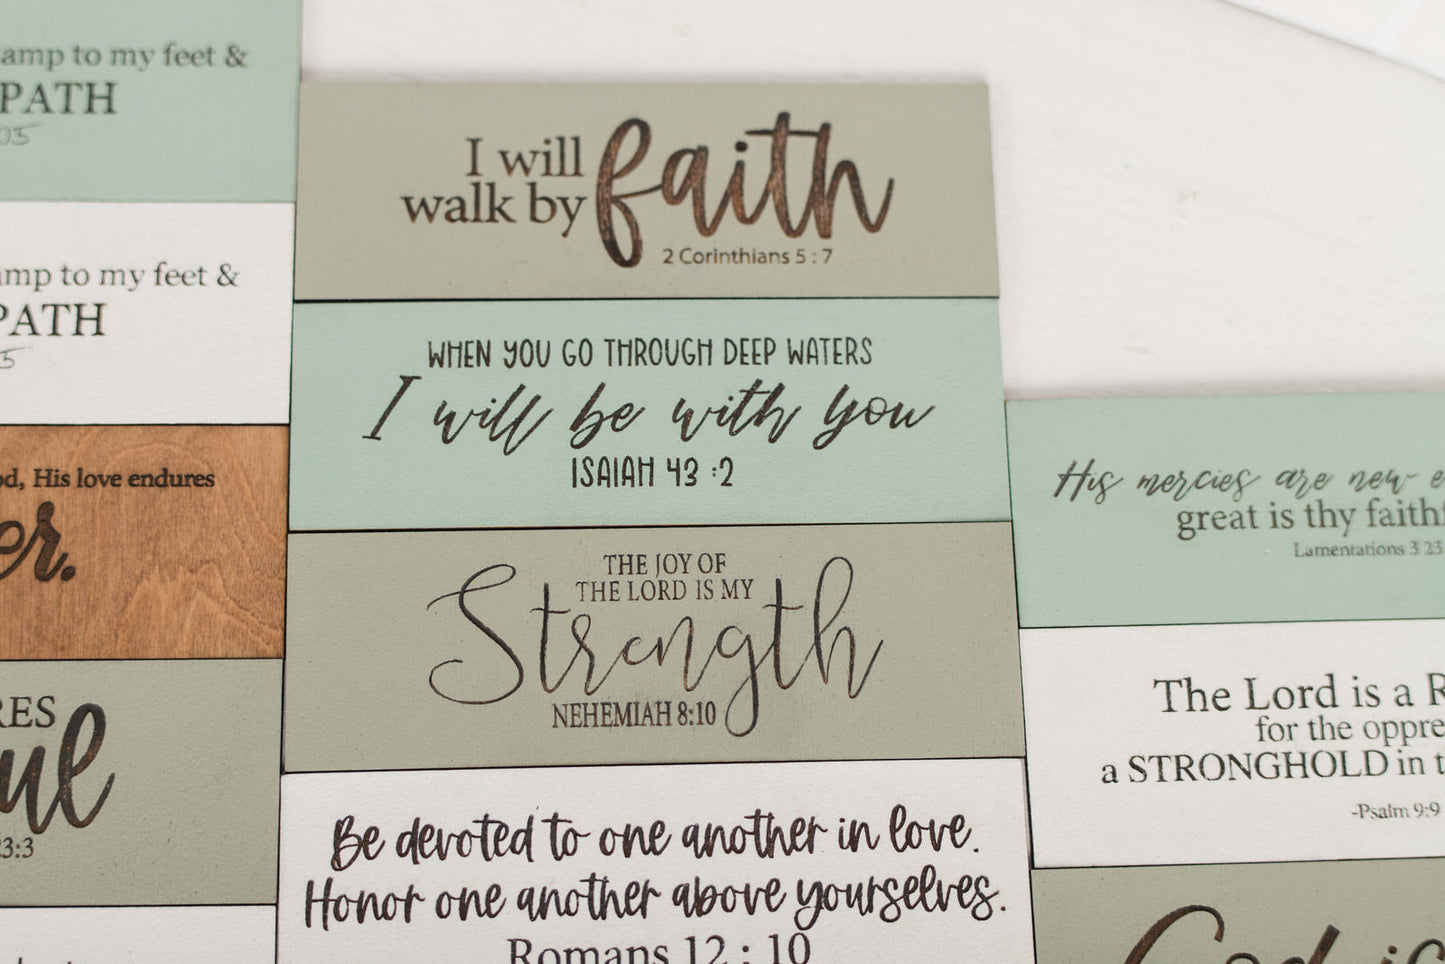 to my feet &
PATH
I will
walk by faith
2 Corinthians 5 : 7
to my feet &
PATH
WHEN YOU GO THROUGH DEEP WATERS
I will be with you
ISAIAH 43 :2
His love endures
THE JOY OF
THE LORD IS MY
Strength
NEHEMIAH 8:10
23:3
Be devoted to one another in love.
Honor one another above yourselves.
Romans 12 : 10
His mercies are new
great is thy
Lamentations 3 23
The Lord is a
for the
a STRONGHOLD in
-Psalm 9:9
God is